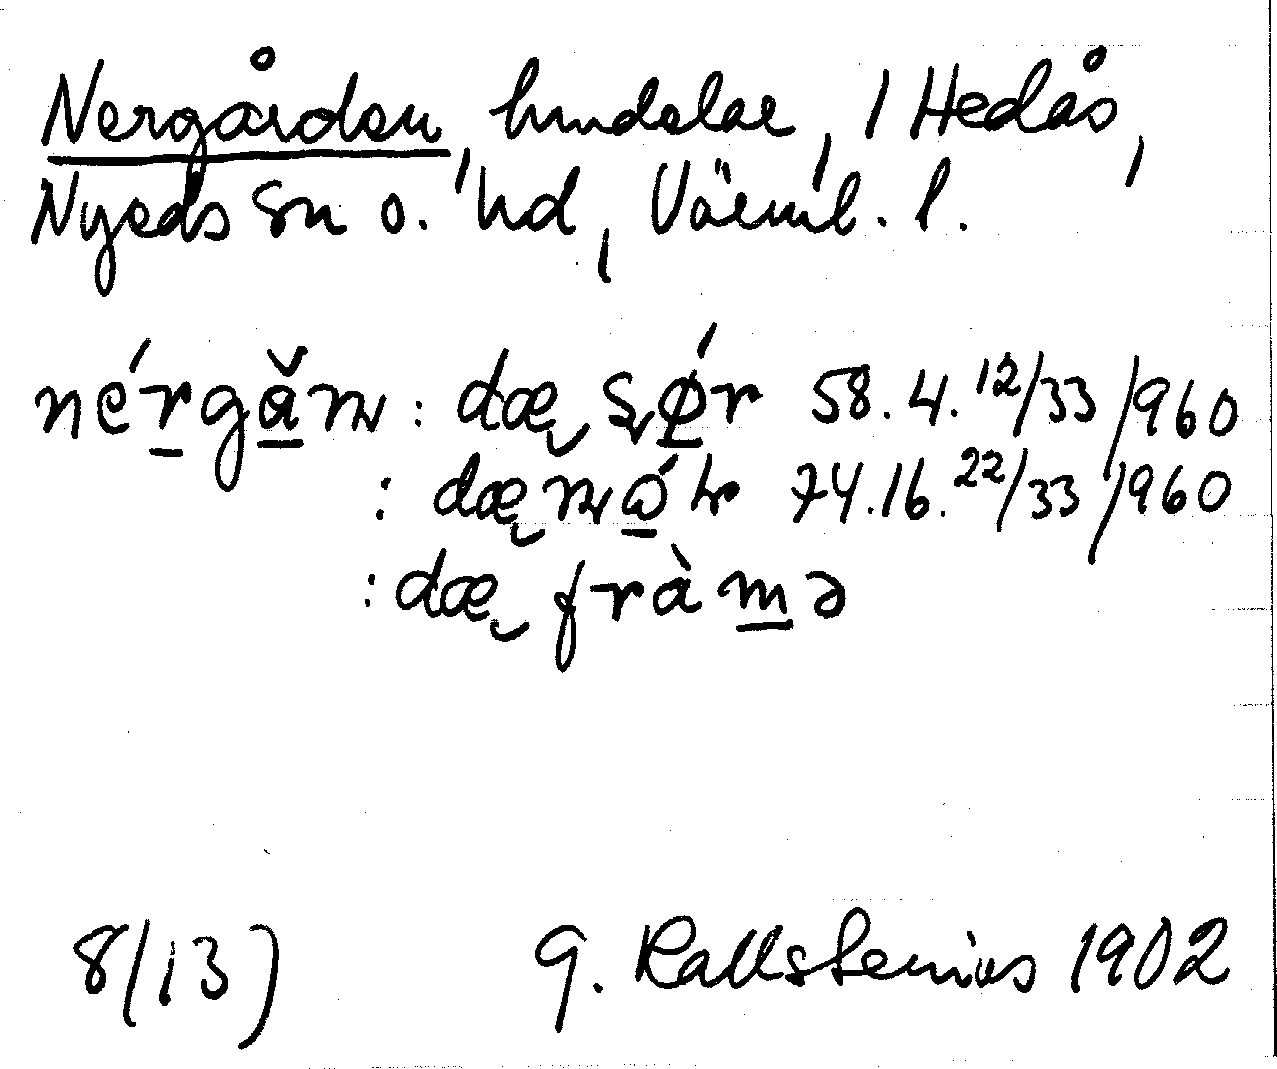 Nergården, hmdelar, i Hedås,
Nyeds sn o. hd, Värml. l.
nérgǎn : dæ sǿr 58.4. 12/33 /960
: dæ nór 74.16. 22/33 /960
: dæ fràmə
8/13) G. Kallstenius 1902